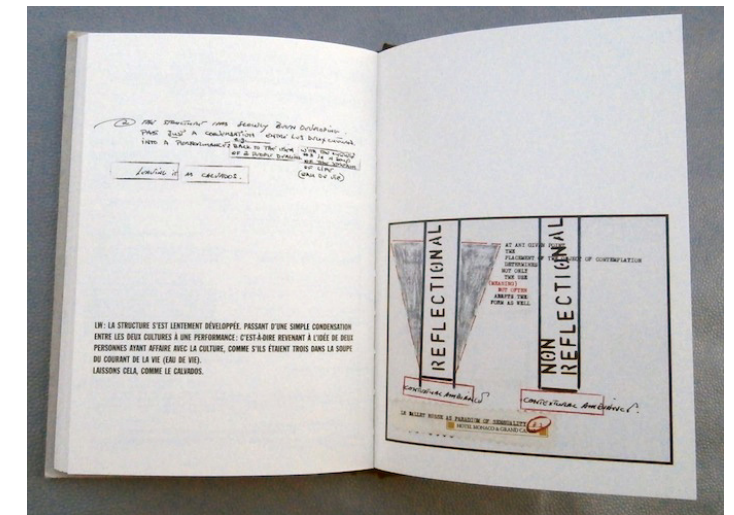 THE STRUCTURE HAS SLOWLY BEEN DEVELOPING.
FROM JUST A CONVERSATION ENTRE LES DEUX CULTURES
INTO A PERFORMANCE BACK TO THE IDEA
OF 2 PEOPLE DEALING
OF LIFE
(EAU DE VIE)
LEAVING IT AS CALVADOS.
LW : LA STRUCTURE S'EST LENTEMENT DÉVELOPPÉE. PASSANT D'UNE SIMPLE CONDENSATION
ENTRE LES DEUX CULTURES À UNE PERFORMANCE : C'EST-À-DIRE REVENANT À L'IDÉE DE DEUX
PERSONNES AYANT AFFAIRE AVEC LA CULTURE, COMME S'ILS ÉTAIENT TROIS DANS LA SOUPE
DU COURANT DE LA VIE (EAU DE VIE).
LAISSONS CELA, COMME LE CALVADOS.
REFLECTIONAL
AT ANY GIVEN POINT
THE
PLACEMENT OF THE OBJECT OF CONTEMPLATION
DETERMINES
NOT ONLY
THE USE
(MEANING)
BUT OFTEN
ADAPTS THE
FORM AS WELL
NON
REFLECTIONAL
CONTEXTURAL AMBIANCE
CONTEXTURAL AMBIANCE.
LE BALLET RUSSE AS PARADIGM OF SENSUALITY
HOTEL MONACO & GRAND CANAL